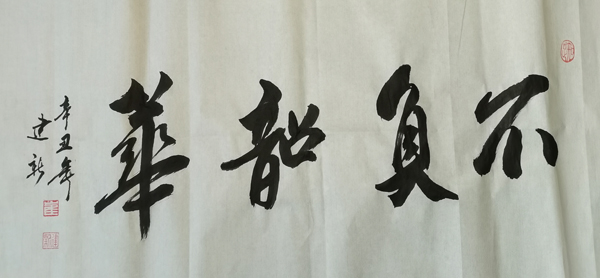 不負韶華
辛丑年
建新